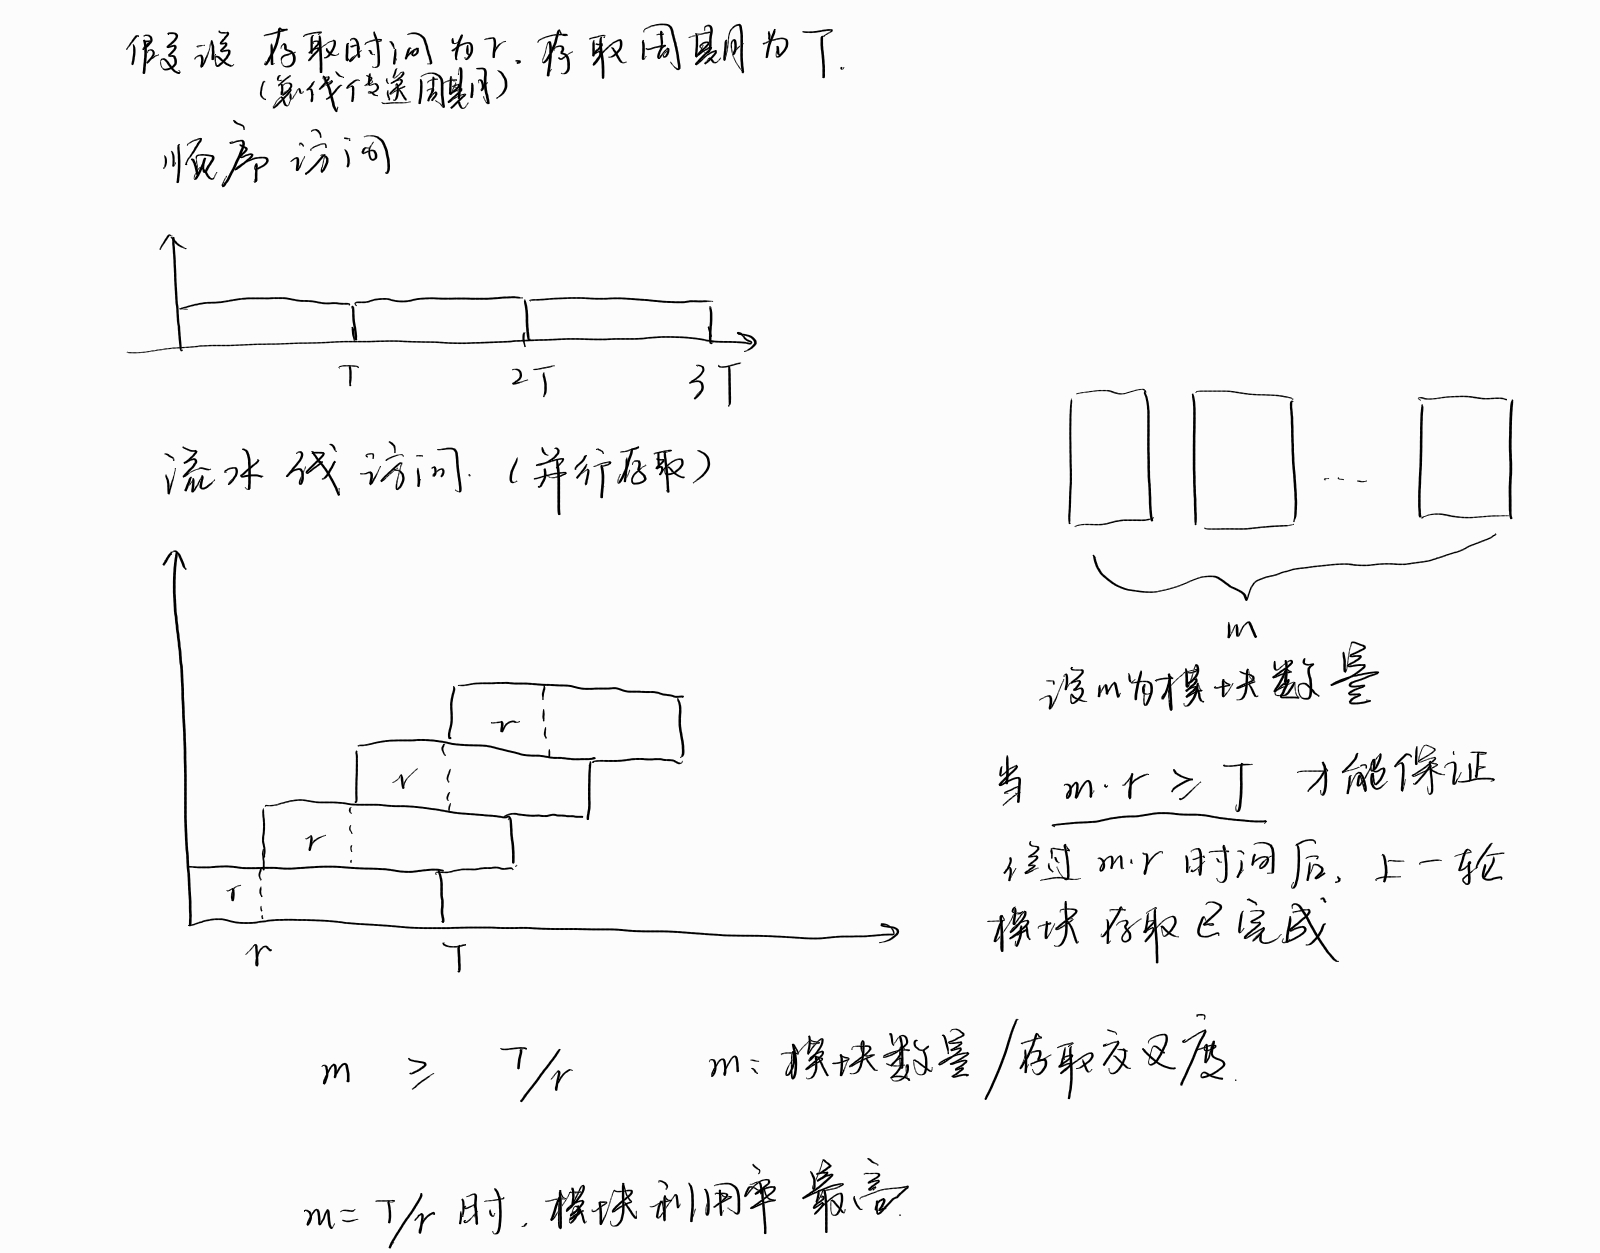 假设 存取时间为r. 存取周期为T.
(总线传送周期)
顺序访问
T 2T 3T
流水线访问. (并行存取)
m
设m为模块数量
r
r
r
r
r T
当 m·r ≥ T 才能保证
经过 m·r 时间后, 上一轮
模块存取已完成
m ≥ T/r m: 模块数量/存取交叉度.
m = T/r 时, 模块利用率最高.